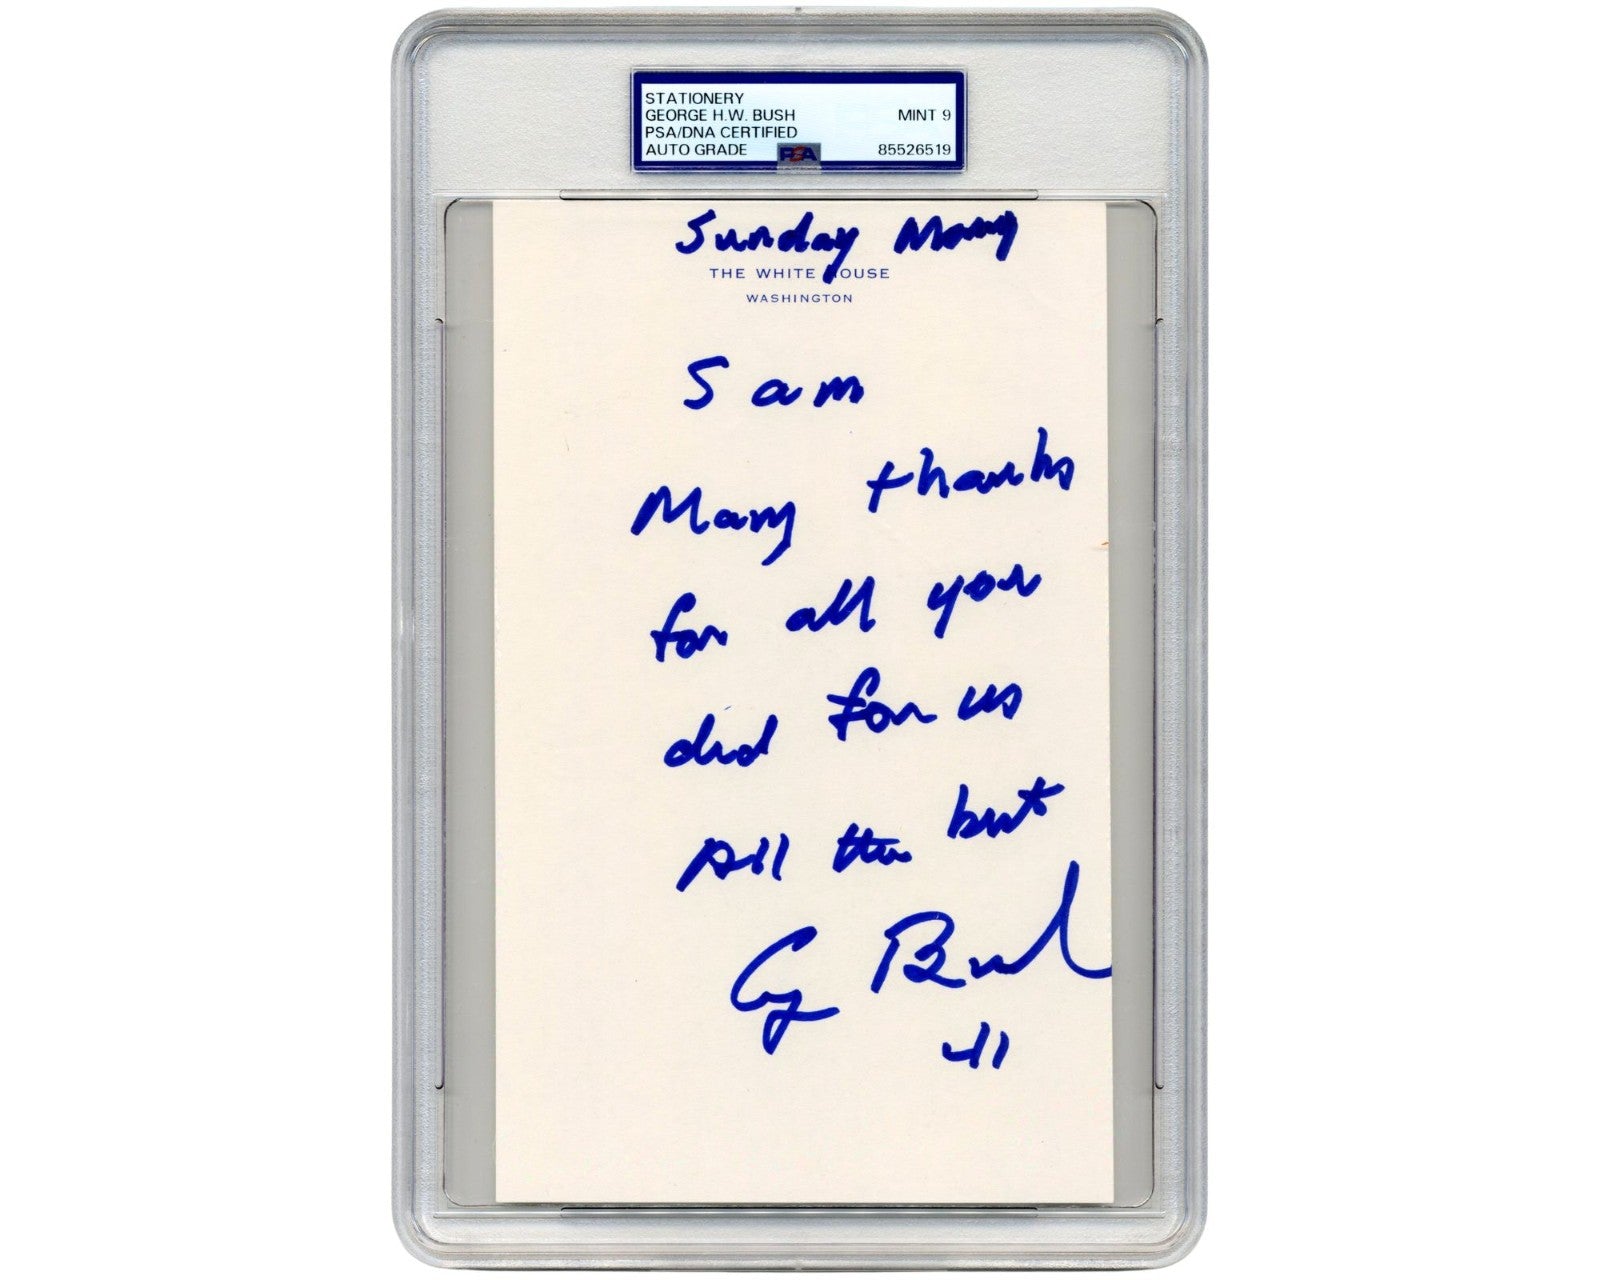 STATIONERY
GEORGE H.W. BUSH MINT 9
PSA/DNA CERTIFIED
AUTO GRADE PSA 85526519
Sunday
THE WHITE HOUSE
WASHINGTON
Sam
Many thanks
for all you
did for us
All the best
Bush
41